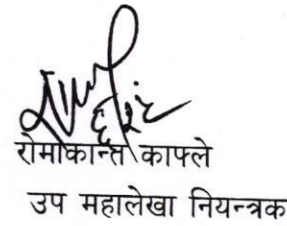 रोमाकान्त काफ्ले
उप महालेखा नियन्त्रक